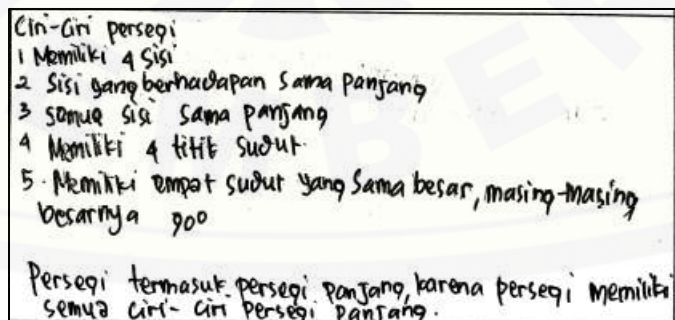 Ciri-Ciri persegi
1 Memiliki 4 sisi
2 Sisi yang berhadapan sama panjang
3 semua sisi sama panjang
4 Memiliki 4 titik sudut
5. Memiliki empat sudut yang sama besar, masing-masing
besarnya 90°
Persegi termasuk persegi panjang, karena persegi memiliki
semua ciri-ciri persegi panjang.